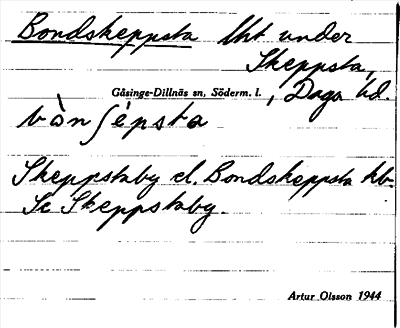 Bondskeppsta lht under
Skeppsta,
Gåsinge-Dillnäs sn, Söderm. l., Daga hd.
bònʃépsta
Skeppstaby el. Bondskeppsta kb.
Se Skeppstaby.
Artur Olsson 1944